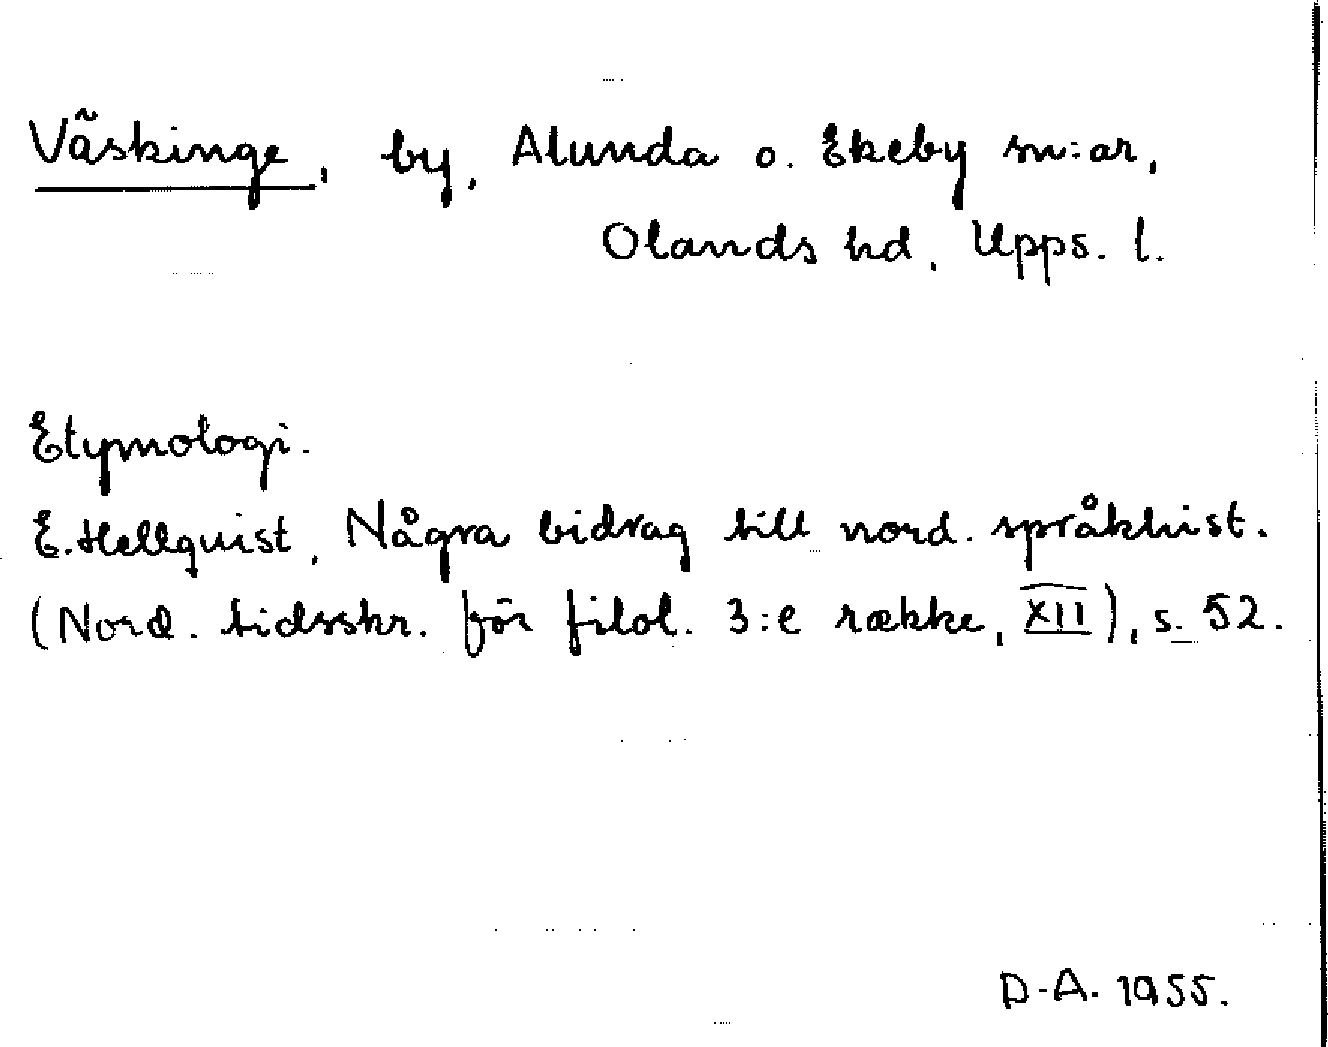 Väskinge, by, Alunda o. Ekeby sn:ar,
Olands hd, Upps. l.
Etymologi.
E. Hellquist, Några bidrag till nord. språkhist.
(Nord. tidsskr. för filol. 3:e række, XII), s. 52.
D-A. 1955.